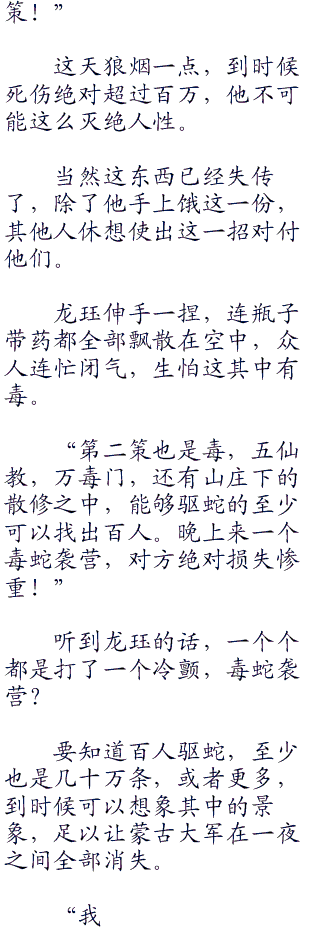 策！”
这天狼烟一点，到时候
死伤绝对超过百万，他不可
能这么灭绝人性。
当然这东西已经失传
了，除了他手上饿这一份，
其他人休想使出这一招对付
他们。
龙珏伸手一捏，连瓶子
带药都全部飘散在空中，众
人连忙闭气，生怕这其中有
毒。
“第二策也是毒，五仙
教，万毒门，还有山庄下的
散修之中，能够驱蛇的至少
可以找出百人。晚上来一个
毒蛇袭营，对方绝对损失惨
重！”
听到龙珏的话，一个个
都是打了一个冷颤，毒蛇袭
营？
要知道百人驱蛇，至少
也是几十万条，或者更多，
到时候可以想象其中的景
象，足以让蒙古大军在一夜
之间全部消失。
“我